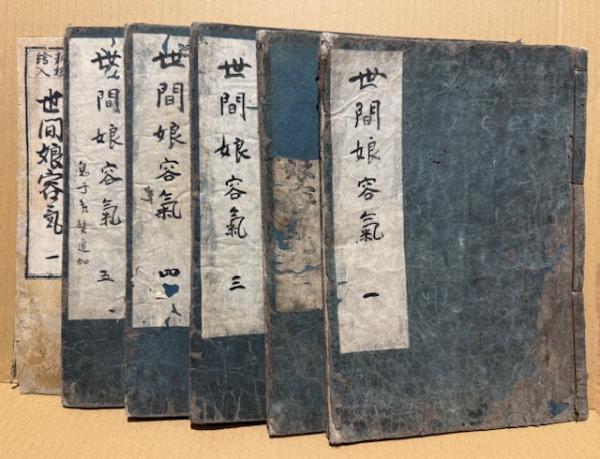 世間娘容氣 一
世間娘容氣 三
世間娘容氣 四
世間娘容氣 五
繪入
世间娘容氣 一